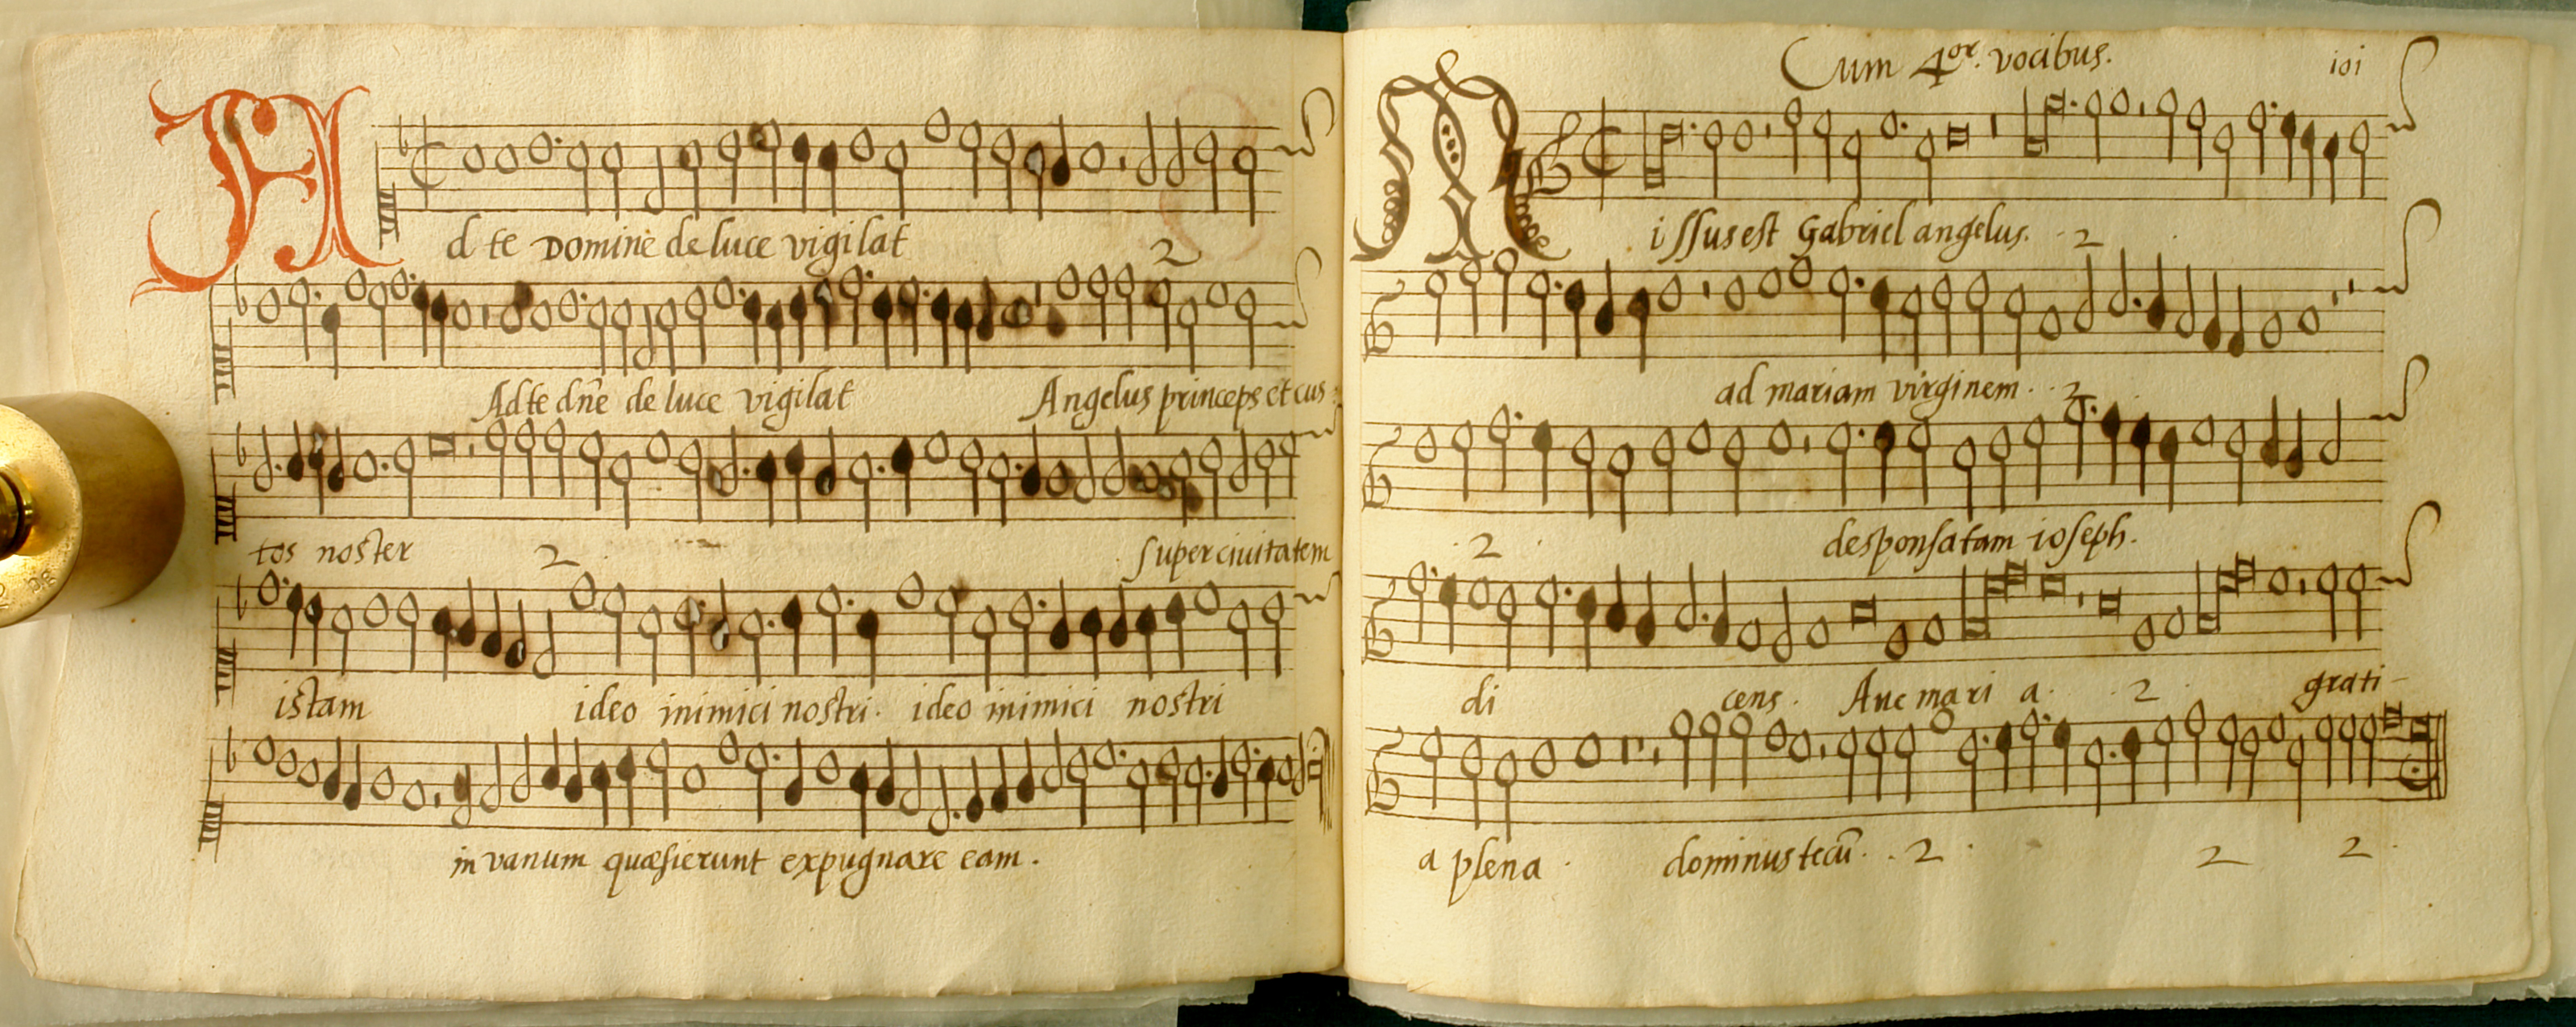 Ad te Domine de luce vigilat
2
Ad te dñe de luce vigilat Angelus princeps et cus
tos noster 2 super ciuitatem
istam ideo inimici nostri. ideo inimici nostri
in vanum quæsierunt expugnare eam.
Cum 4or. vocibus. 101
Missus est Gabriel angelus. 2
ad mariam virginem. 2
2 desponsatam ioseph.
di cens. Aue mari a. 2 grati-
a plena. dominus tecũ. 2. 2 2.